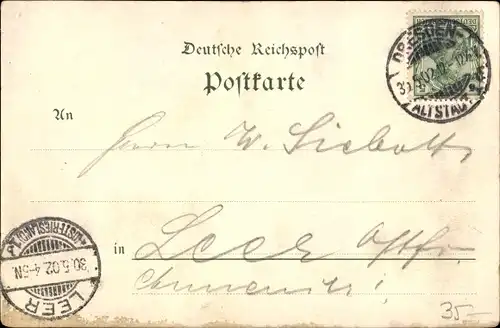 Deutsche Reichspost
Postkarte
DRESDEN-
30.5.02
ALTSTADT
An
Herrn W.
in Leer Ostfr.
LEER
(OSTFRIESLAND)
30.5.02.4-5N.
35-